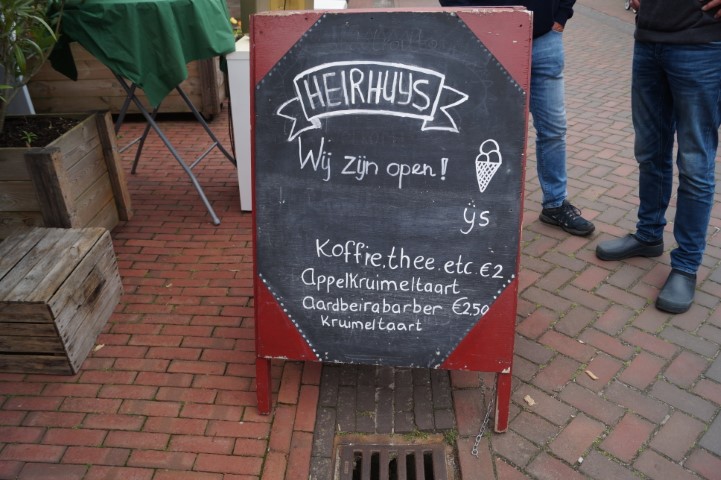 HEIRHUYS
Wij zijn open!
ÿs
Koffie, thee. etc. €2
Appelkruimeltaart
Aardbeirabarber €2,50
Kruimeltaart